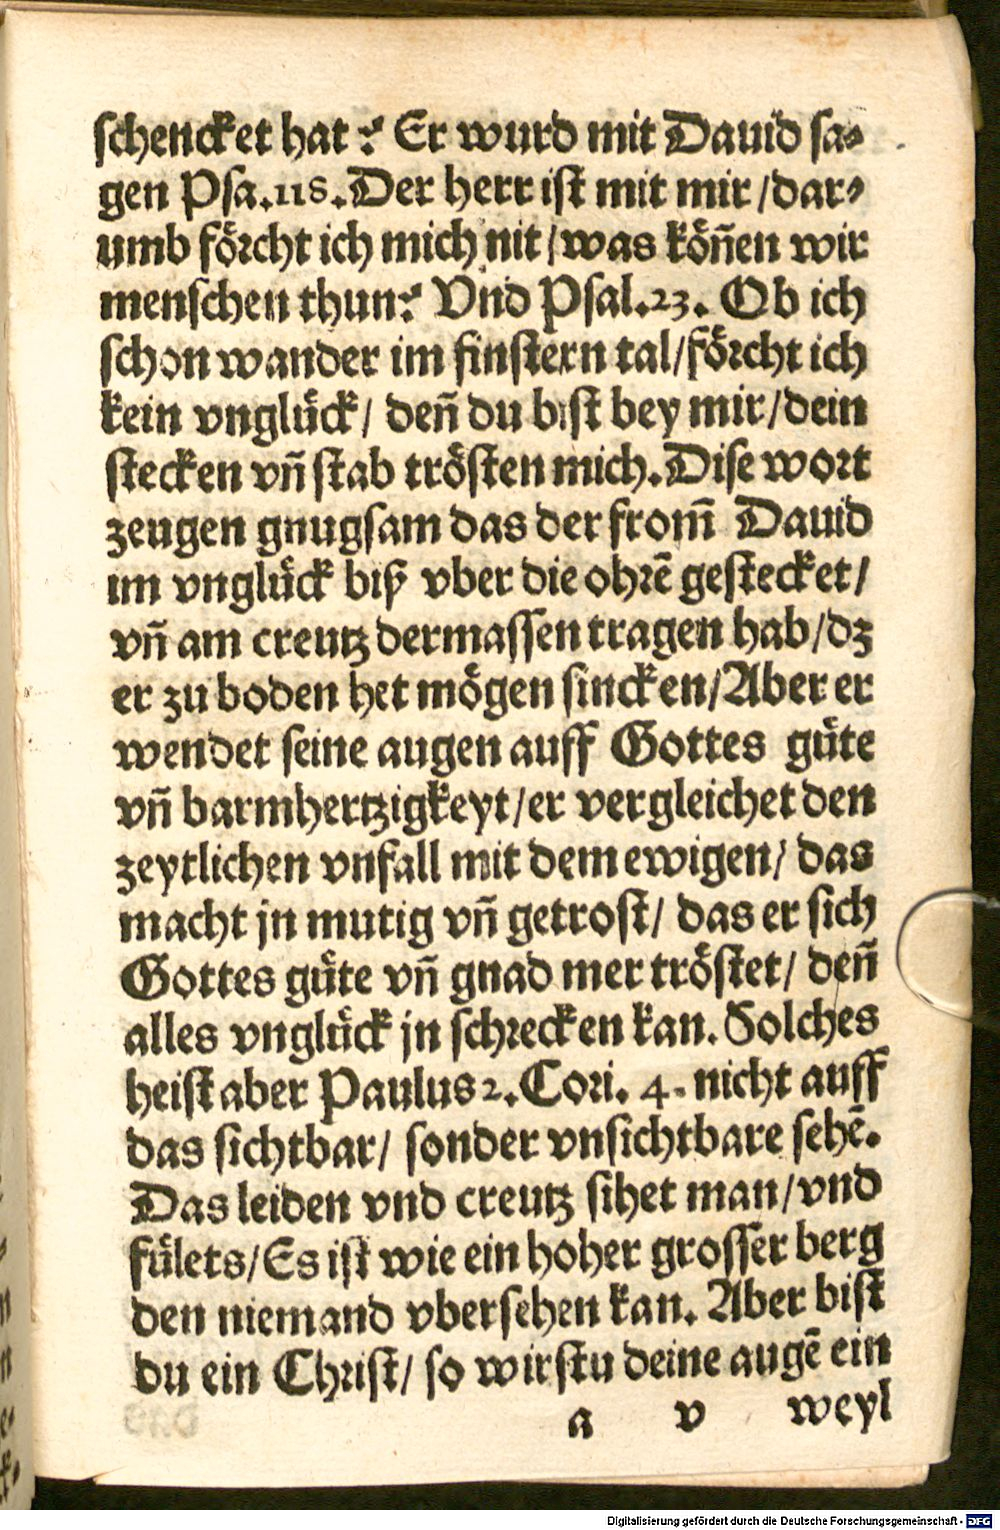 schencket hat? Er wurd mit Dauid sa⸗
gen Psa.118.Der herr ist mit mir/dar⸗
umb foͤrcht ich mich nit/was koͤñen wir
menschen thun? Vnd Psal.23. Ob ich
schon wander im finstern tal/foͤrcht ich
kein vngluͤck/ deñ du bist bey mir/dein
stecken vñ stab troͤsten mich.Dise wort
zeugen gnugsam das der from̃ Dauid
im vngluͤck biß vber die ohrẽ gestecket/
vñ am creutz dermassen tragen hab/dz
er zu boden het moͤgen sincken/Aber er
wendet seine augen auff Gottes guͤte
vñ barmhertzigkeyt/er vergleichet den
zeytlichen vnfall mit dem ewigen/ das
macht jn mutig vñ getrost/ das er sich
Gottes guͤte vñ gnad mer troͤstet/ deñ
alles vngluͤck jn schrecken kan. Solches
heist aber Paulus 2.Cori. 4. nicht auff
das sichtbar/ sonder vnsichtbare sehẽ.
Das leiden vnd creutz sihet man/vnd
fuͤlets/Es ist wie ein hoher grosser berg
den niemand vbersehen kan. Aber bist
du ein Christ/ so wirstu deine augẽ ein
a v weyl
Digitalisierung gefördert durch die Deutsche Forschungsgemeinschaft - DFG